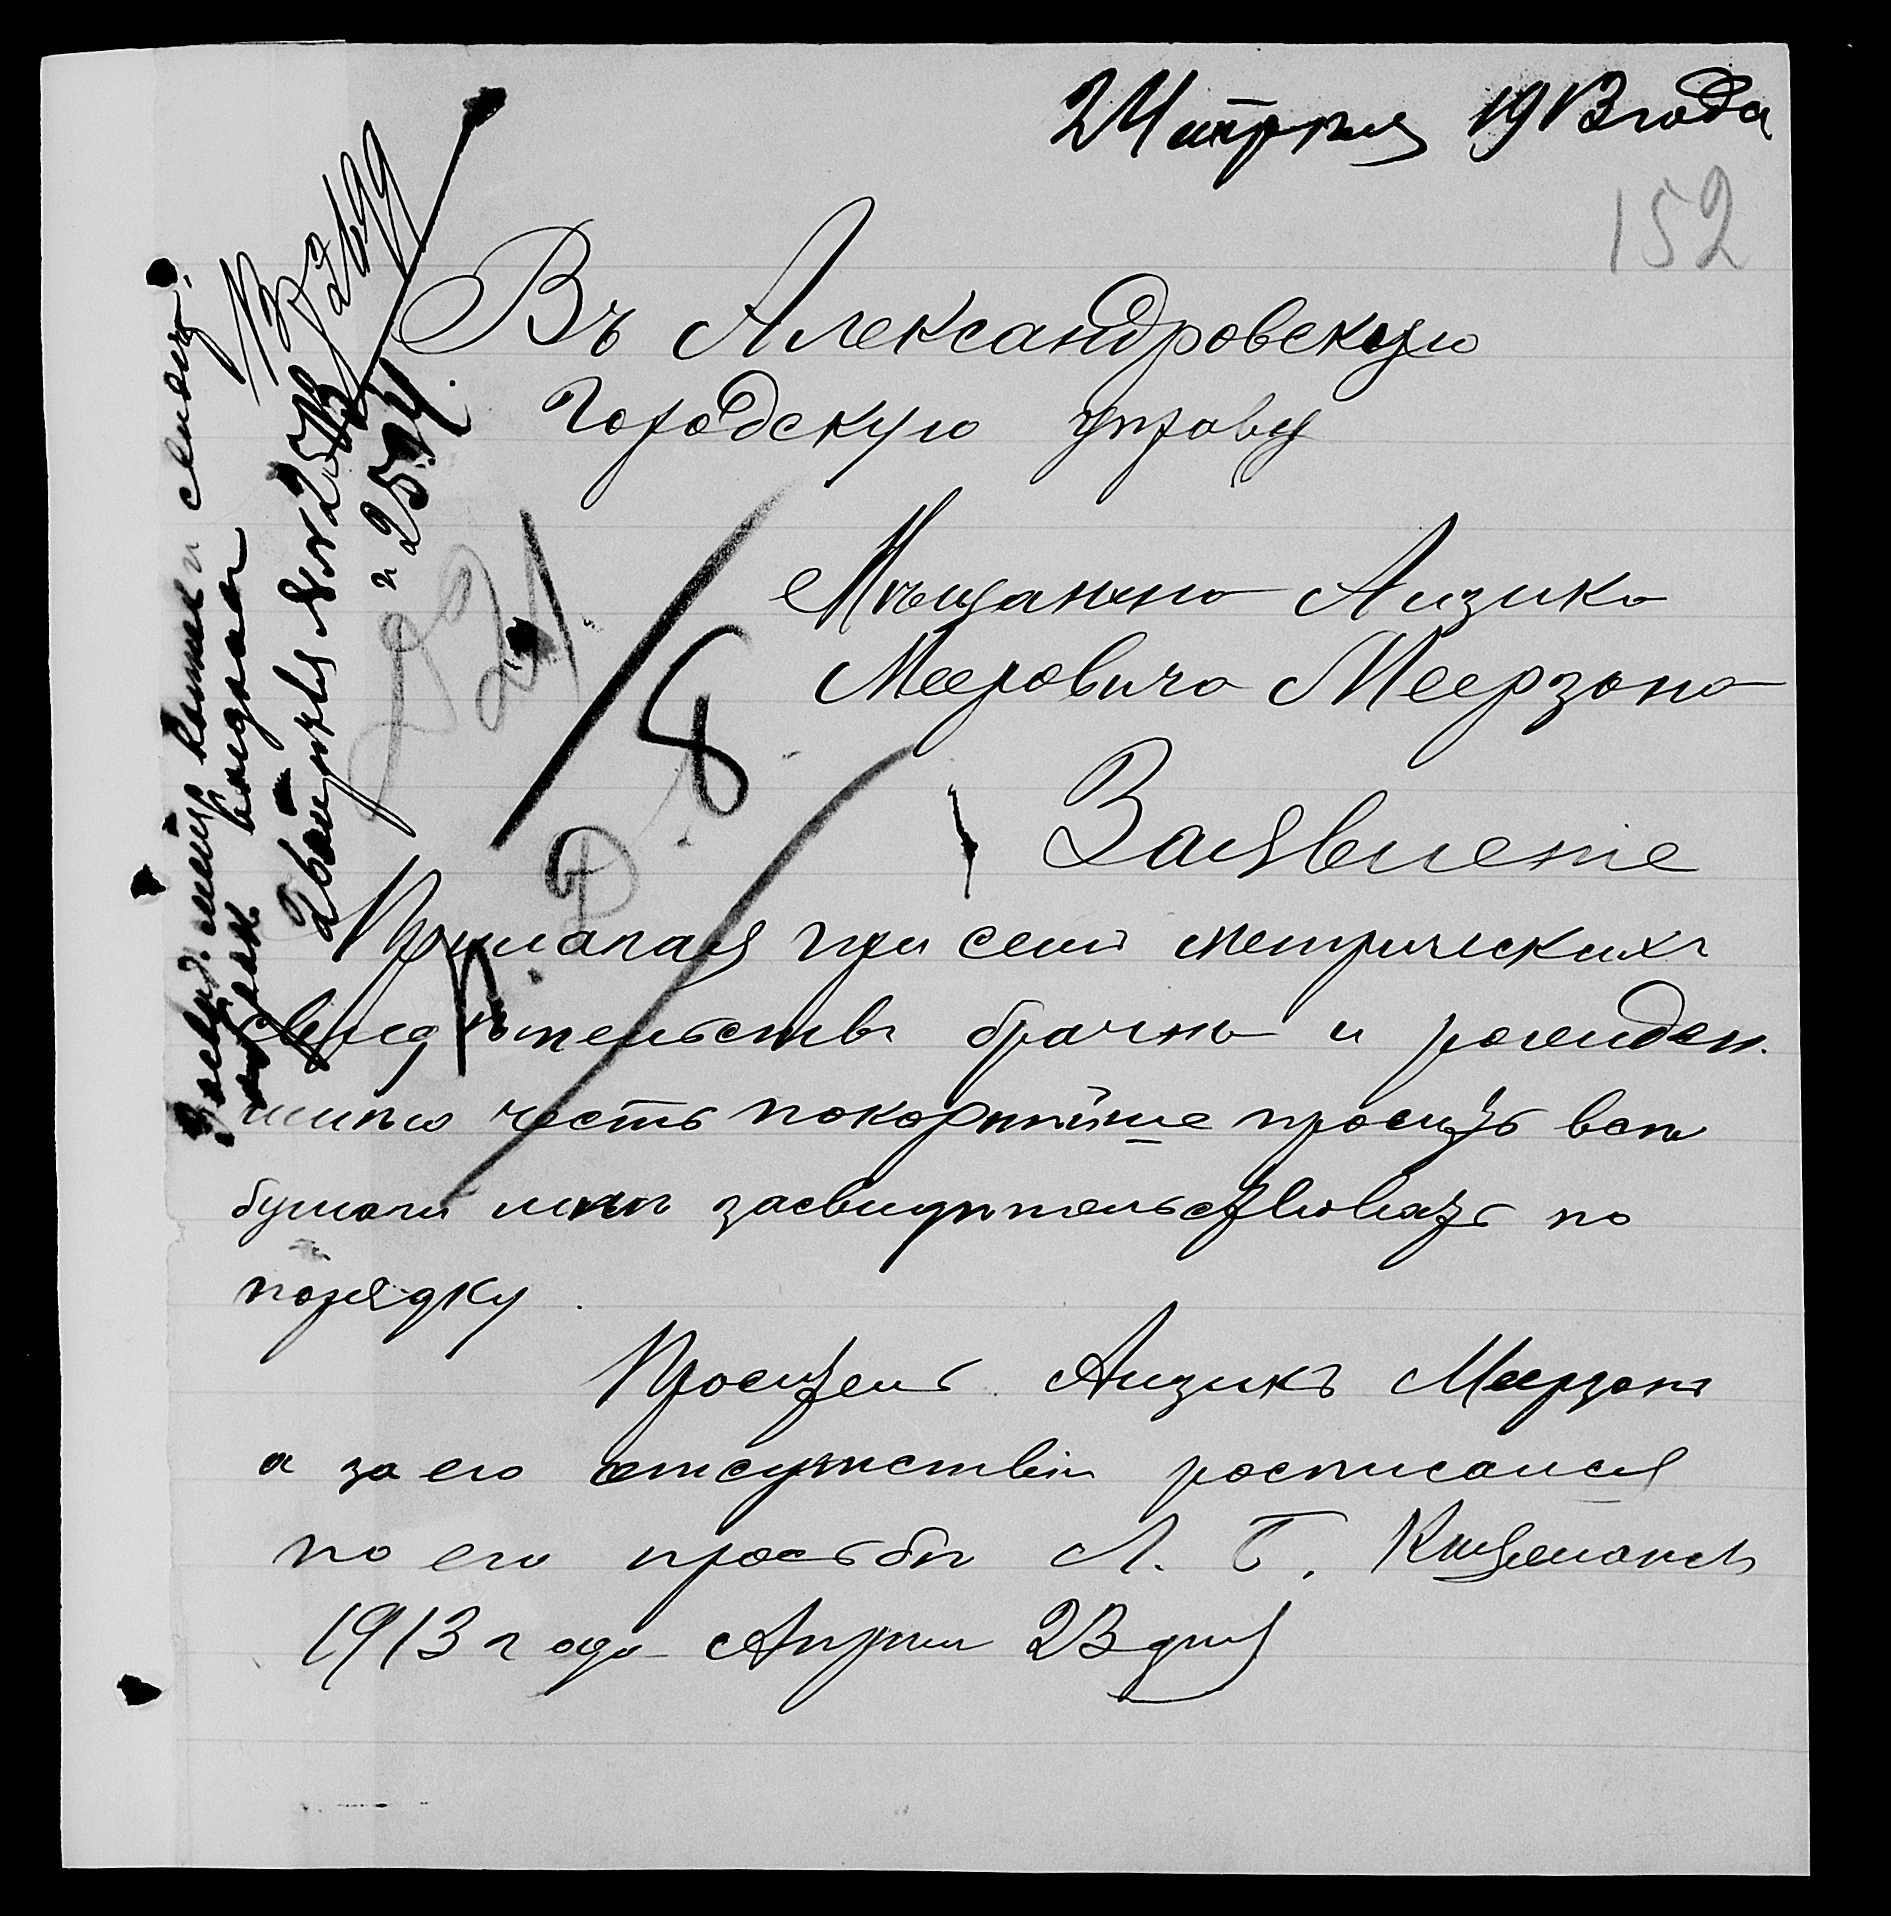 24 апреля 1913 года
152
Въ Александровскую
Городскую управу
Мѣщанина Аизика
Мееровича Меерзона
Заявление
Прилагая при семъ метрическихъ
свидѣтельствъ брачна и рожиден.
имѣю честь покорнѣйше просить ваш
бумаги мнѣ засвидѣтельствовать по
порядку.
Проситель Аизикъ Меерзонъ
а за его отсутствіи росписался
по его просьбѣ Л. Г.
1913 года Апреля 23 дня
24/
8
Д.
копіи
выдал
25 апрѣля №№ 2573
и 2574.